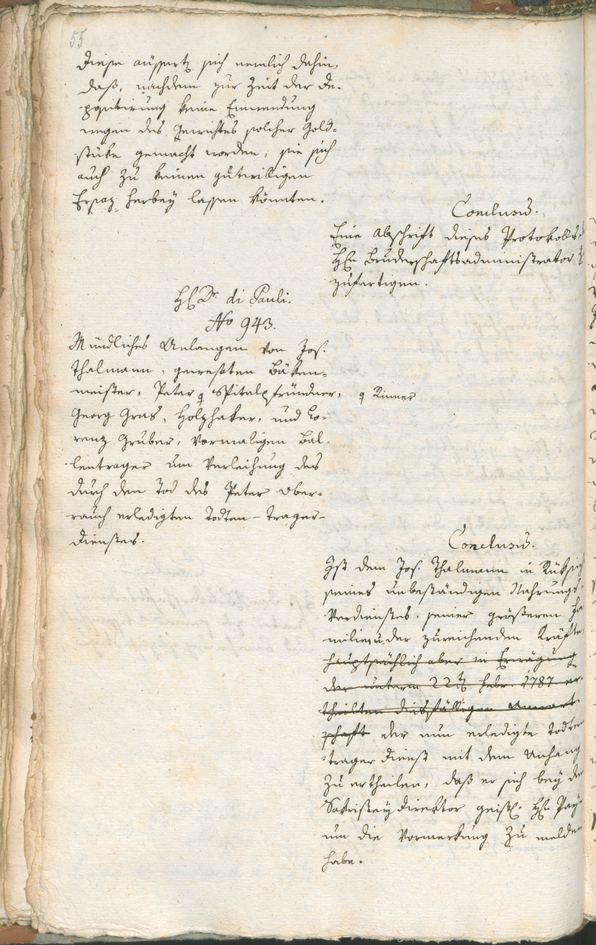 55
diese äussert sich nemlich dahin,
daß, nachdem zur Zeit der De-
positirung keine Einwendung
wegen des Gewichtes solcher Gold-
stüke gemacht worden, sie sich
auch zu keinen gutwilligen
Ersaz herbey lassen könnten.
Conclusū.
Eine Abschrift dieses Protokolls
Hrn Bruderschaftsadministrator
zufertigen.
H. Dr di Pauli.
No 943.
Mündliches Anlangen von Jos.
Thalmann, gewesten Bäken-
meister, Peter q Spitalpfründner,
q Rinner
Georg Gras, Holzhaker, und Lo-
renz Gruber, vormaligen Bal-
lentrager um Verleihung des
durch den Tod des Peter Ober-
rauch erledigten Todten-trager-
dienstes.
Conclusū.
Ist dem Jos. Thalmann in Rüksicht
seines unbeständigen Nahrungs-
Verdienstes, seiner größeren Fa
milie u. der zureichenden Kräfte
hauptsächlich aber in Erwägung
der unterm 22t Febr. 1787 er
theilten diesfälligen Anwart
schaft der nun erledigte Todten
trager Dienst mit dem Anhang
zu ertheilen, daß er sich bey de
Sakristeydirektor geistl. Hrn
um die Vormerkung zu melden
habe.